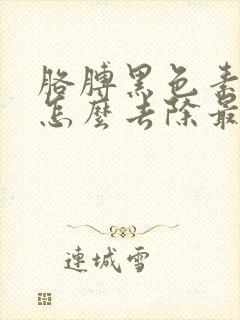 胳膊黑色素
怎麼去除最
連城雪